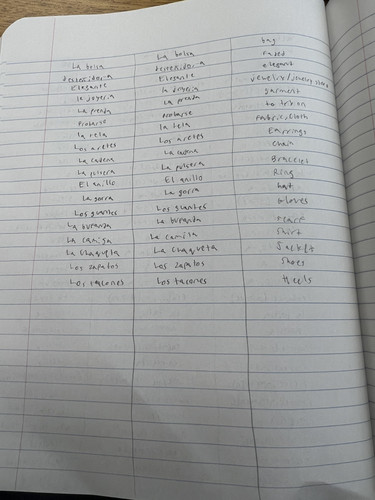 La bolsa La bolsa bag
desteñido.a desteñido.a Faded
Elegante Elegante elegant
la joyeria la joyeria jewelry store
La prenda La prenda garment
Probarse Probarse to try on
la tela la tela Fabric, cloth
Los aretes Los aretes Earrings
La cadena La cadena Chain
La pulsera La pulsera Bracelet
El anillo El anillo Ring
La gorra La gorra hat
Los guantes Los guantes gloves
La bufanda La bufanda scarf
La camisa La camisa Shirt
La chaqueta La chaqueta Jacket
Los zapatos Los zapatos Shoes
Los tacones Los tacones Heels